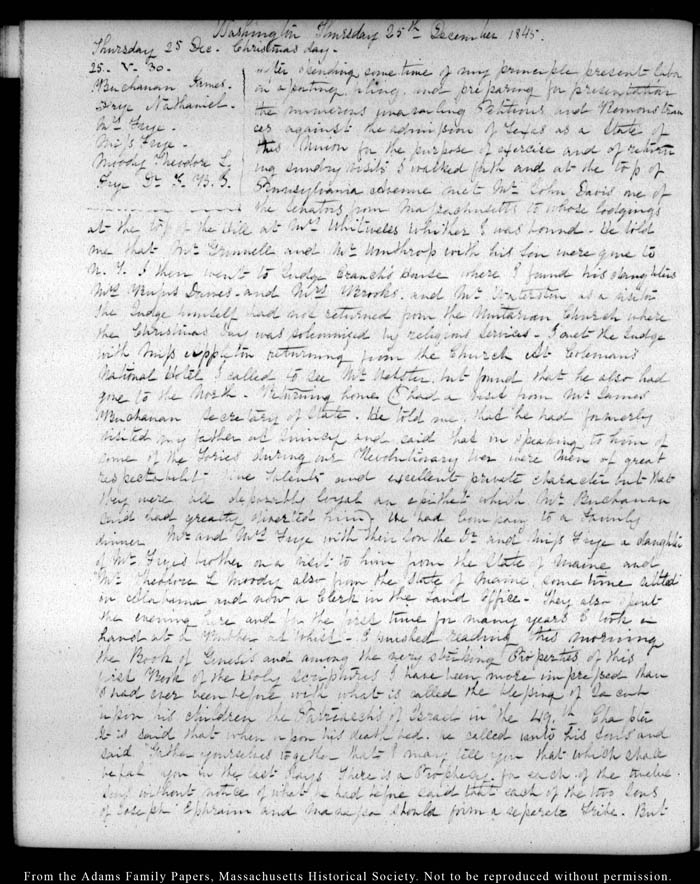 Washington Thursday 25th December 1845.
Thursday 25 Dec. Christmas day.
25. V. 30.
Buchanan James.
Frye Nathaniel.
Mrs Frye.
Miss Frye.
Moody Theodore L.
Frye Dr
after spending some time of my principle present labor
and preparing for presentation
the numerous unavailing Petitions and Remonstran
ces against the admission of Texas as a State of
this Union for the purpose of exercise and of return
ing sundry visits I walked forth and at the top of
Pennsylvania Avenue met Mr John Davis one of
the Senators from Massachusetts to whose lodgings
at the top of the Hill at Mrs Whitwells whither I was bound. He told
me that Mr Grinnell and Mr Winthrop with his Son were gone to
N. Y. I then went to Judge Cranch's house where I found his daughters
Mrs Rufus Dawes and Mrs Brooks, and Mr Waterston as a visitor
The Judge himself had not returned from the Unitarian Church where
the Christmas Day was solemnised by religious services. I met the Judge
with Miss Appleton returning from the Church At Coleman's
National Hotel I called to see Mr Webster, but found that he also had
gone to the North. Returning home I had a visit from Mr James
Buchanan Secretary of State. He told me, that he had formerly
visited my father at Quincy and said that in speaking to him of
some of the Tories during our Revolutionary War were men of great
respectability, fine talents and excellent private character but that
they were all deporably loyal an epithet which Mr Buchanan
said had greatly diverted him. We had Company to a Family
dinner Mr and Mrs Frye with their Son the Dr and Miss Frye a daughter
of Mr Frye's brother on a visit to him from the State of Maine and
Mr Theodore L Moody also from the State of Maine, some time settled
in Alabama and now a Clerk in the Land Office. They also spent
the evening here and for the first time for many years I took a
hand at a Rubber at Whist. I finished reading this morning
the Book of Genesis and among the very striking Properties of this
first Book of the Holy Scriptures I have been more impressed than
I had ever been before with what is called the blessing of Jacob
upon his children the Patriarchs of Israel in the 49.th Chapter
It is said that when upon his death bed, he called unto his Sons and
said "Gather yourselves together that I may tell you that which shall
befal you in the last days. There is a Prophecy for each of the twelve
Sons without notice of what he had before said that each of the two Sons
of Joseph Ephraim and Manasseh should form a seperate Tribe. But
From the Adams Family Papers, Massachusetts Historical Society. Not to be reproduced without permission.